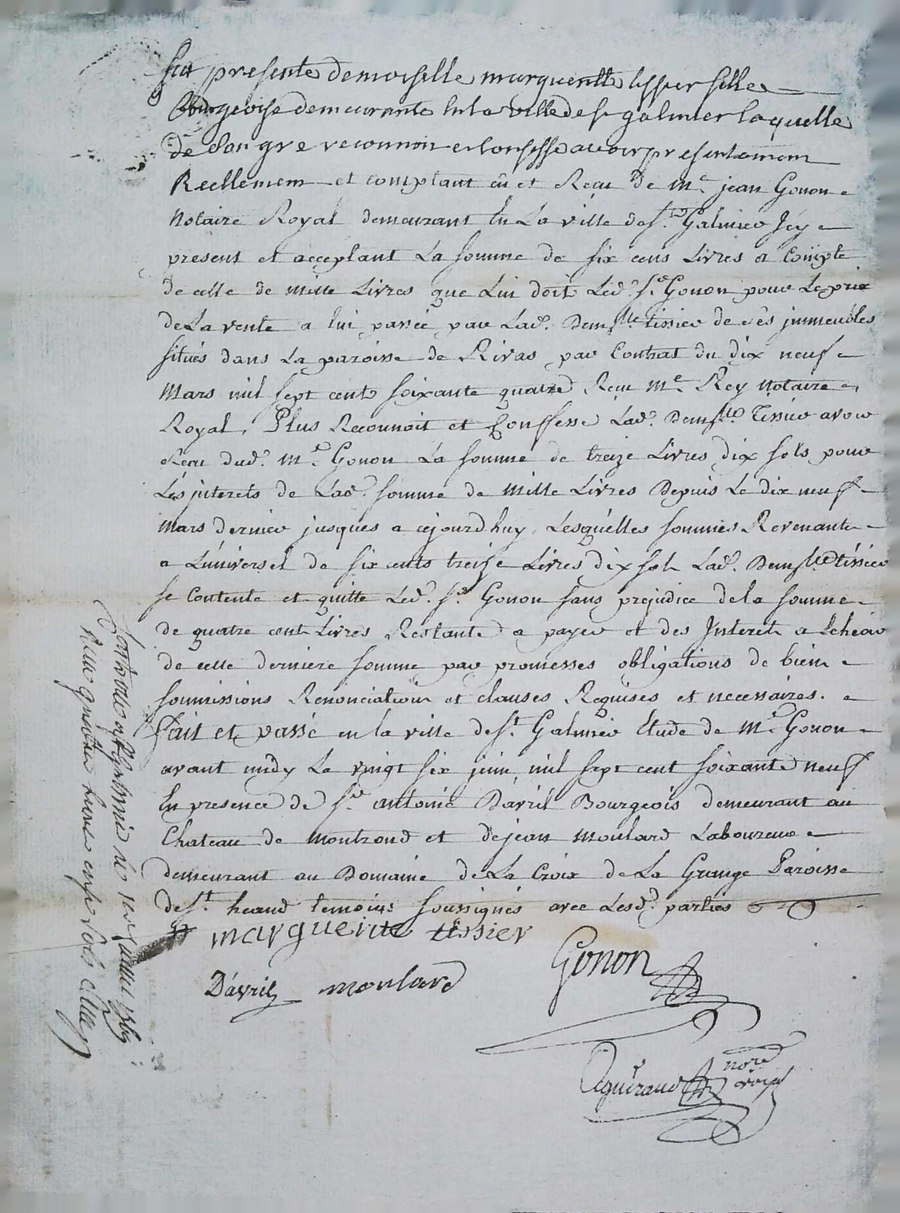 fut presente demoiselle margueritte tissier fille
Bourgeoise demeurante en la ville de st galmier laquelle
de son gre reconnoit et confesse avoir presentement
Reellement et comptant eû et Recu de Me. jean Gonon
Notaire Royal demeurant En La ville de st. Galmier Icy
present et acceptant La somme de six cens Livres a Compte
de celle de Mille Livres que Lui doit Led. sr. Gonon pour Le prix
de La vente a lui passée par Lad. Demlle tissier de ses immeubles
situés dans La paroisse de Rivas par Contrat du dix neuf
Mars mil sept cent soixante quatre Recu Me. Rey Notaire
Royal, Plus Reconnoit et Confesse Lad. Demlle Tissier avoir
Recu dud. Me. Gonon La somme de treize Livres dix sols pour
Les jnterets de Lad. somme de Mille Livres Depuis Le dix neuf
Mars dernier jusques a cejourdhuy, Lesquelles sommes Revenante
a L'universel de six cents treise Livres dix sols Lad. Demlle tissier
se Contente et quitte Led. sr. Gonon sans prejudice de la somme
de quatre cent Livres Restante a payer et des Jnterets a Echeoir
de cette derniere somme par promesses obligations de bien
soumissions Renonciation et clauses Requises et necessaires.
fait et passé en la ville de St. Galmier Etude de Me. Gonon
avant midy Le vingt six juin, mil sept cent soixante neuf
En presence de sr antoine Davril Bourgeois demeurant au
Chateau de Montrond et de jean Moulard Laboureur
demeurant au Domaine de La Croix de La Grange Paroisse
de st. heand temoins soussignés avec Lesd. parties
marguerite tissier
Gonon
D'avril moulard
Aguiraud nore
royal
Controlé a st Galmier le 1769
Recu quatre livres onze sols